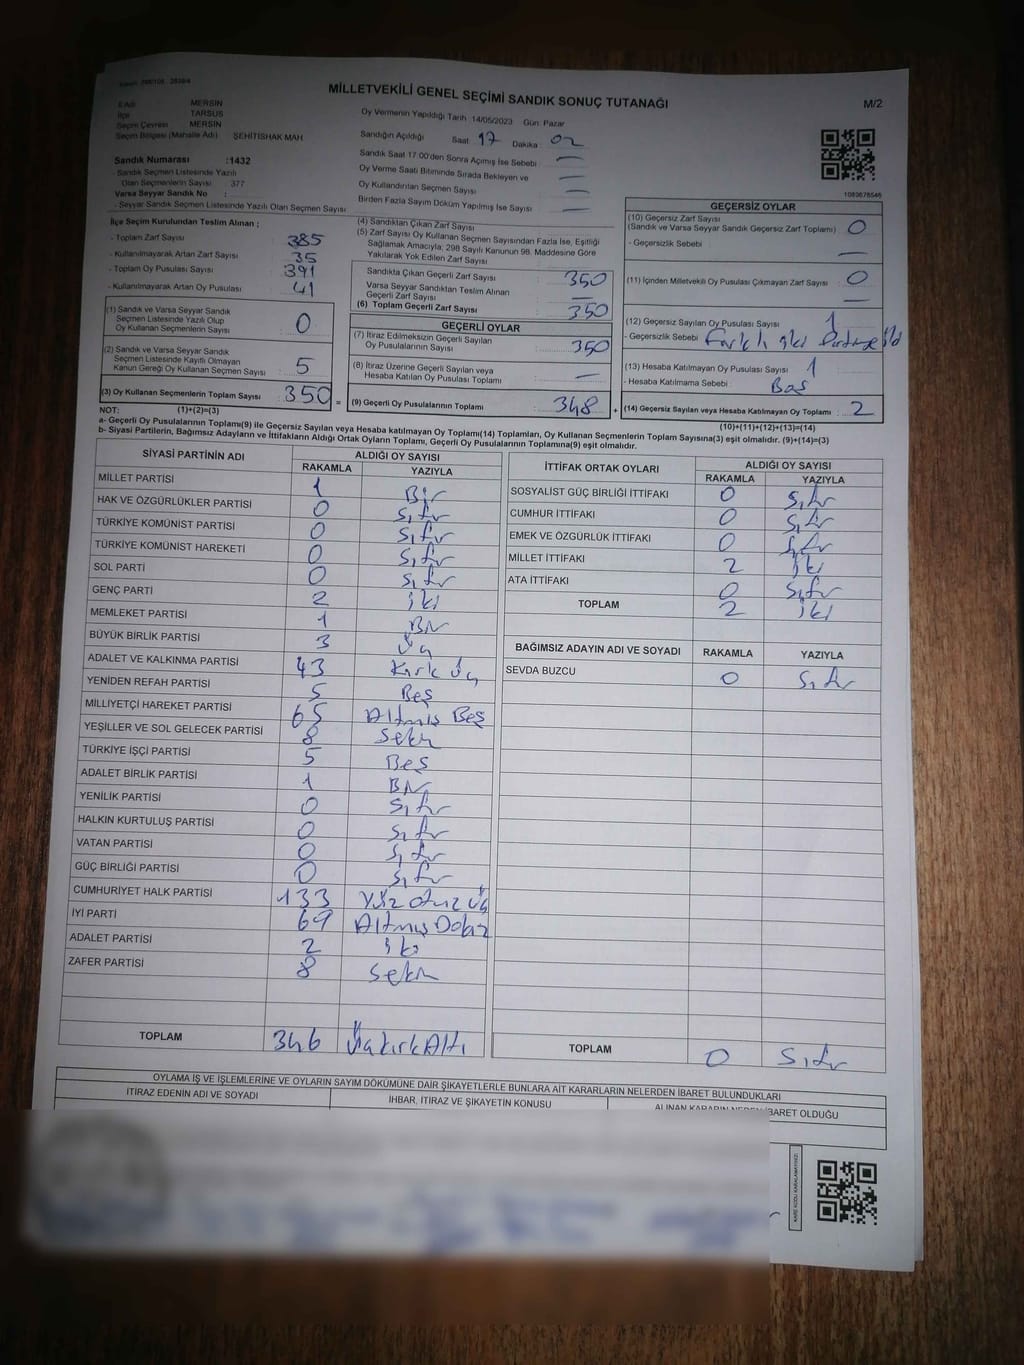 MİLLETVEKİLİ GENEL SEÇİMİ SANDIK SONUÇ TUTANAĞI
M/2
İl Adı MERSİN
İlçe TARSUS
Seçim Çevresi MERSİN
Seçim Bölgesi (Mahalle Adı) ŞEHİTİSHAK MAH.
Sandık Numarası :1432
Sandık Seçmen Listesinde Yazılı
Olan Seçmenlerin Sayısı : 377
Varsa Seyyar Sandık No :
- Seyyar Sandık Seçmen Listesinde Yazılı Olan Seçmen Sayısı
Oy Vermenin Yapıldığı Tarih 14/05/2023 Gün: Pazar
Sandığın Açıldığı Saat 17 Dakika 02
Sandık Saat 17.00'den Sonra Açılmış İse Sebebi : —
Oy Verme Saati Bitiminde Sırada Bekleyen ve —
Oy Kullandırılan Seçmen Sayısı : —
Birden Fazla Sayım Döküm Yapılmış İse Sayısı : —
1083678546
İlçe Seçim Kurulundan Teslim Alınan ;
- Toplam Zarf Sayısı : 385
- Kullanılmayarak Artan Zarf Sayısı : 35
- Toplam Oy Pusulası Sayısı : 391
- Kullanılmayarak Artan Oy Pusulası : 41
(1) Sandık ve Varsa Seyyar Sandık
Seçmen Listesinde Yazılı Olup
Oy Kullanan Seçmenlerin Sayısı : 0
(2) Sandık ve Varsa Seyyar Sandık
Seçmen Listesinde Kayıtlı Olmayan
Kanun Gereği Oy Kullanan Seçmen Sayısı : 5
(3) Oy Kullanan Seçmenlerin Toplam Sayısı : 350
(4) Sandıktan Çıkan Zarf Sayısı
(5) Zarf Sayısı Oy Kullanan Seçmen Sayısından Fazla İse, Eşitliği
Sağlamak Amacıyla; 298 Sayılı Kanunun 98. Maddesine Göre
Yakılarak Yok Edilen Zarf Sayısı :
Sandıkta Çıkan Geçerli Zarf Sayısı : 350
Varsa Seyyar Sandıktan Teslim Alınan
Geçerli Zarf Sayısı : —
(6) Toplam Geçerli Zarf Sayısı : 350
GEÇERLİ OYLAR
(7) İtiraz Edilmeksizin Geçerli Sayılan
Oy Pusulalarının Sayısı : 350
(8) İtiraz Üzerine Geçerli Sayılan veya
Hesaba Katılan Oy Pusulası Toplamı : —
= (9) Geçerli Oy Pusulalarının Toplamı : 348
GEÇERSİZ OYLAR
(10) Geçersiz Zarf Sayısı
(Sandık ve Varsa Seyyar Sandık Geçersiz Zarf Toplamı) : 0
- Geçersizlik Sebebi : —
(11) İçinden Milletvekili Oy Pusulası Çıkmayan Zarf Sayısı : 0
—
(12) Geçersiz Sayılan Oy Pusulası Sayısı : 1
- Geçersizlik Sebebi : Farklı iki
(13) Hesaba Katılmayan Oy Pusulası Sayısı : 1
- Hesaba Katılmama Sebebi : Boş
+ (14) Geçersiz Sayılan veya Hesaba Katılmayan Oy Toplamı : 2
NOT: (1)+(2)=(3)
(10)+(11)+(12)+(13)=(14)
a- Geçerli Oy Pusulalarının Toplamı(9) ile Geçersiz Sayılan veya Hesaba Katılmayan Oy Toplamı(14) Toplamları, Oy Kullanan Seçmenlerin Toplam Sayısına(3) eşit olmalıdır. (9)+(14)=(3)
b- Siyasi Partilerin, Bağımsız Adayların ve İttifakların Aldığı Ortak Oyların Toplamı, Geçerli Oy Pusulalarının Toplamına(9) eşit olmalıdır.
SİYASİ PARTİNİN ADI ALDIĞI OY SAYISI
RAKAMLA YAZIYLA
MİLLET PARTİSİ 1 Bir
HAK VE ÖZGÜRLÜKLER PARTİSİ 0 Sıfır
TÜRKİYE KOMÜNİST PARTİSİ 0 Sıfır
TÜRKİYE KOMÜNİST HAREKETİ 0 Sıfır
SOL PARTİ 0 Sıfır
GENÇ PARTİ 2 iki
MEMLEKET PARTİSİ 1 Bir
BÜYÜK BİRLİK PARTİSİ 3 Üç
ADALET VE KALKINMA PARTİSİ 43 Kırk Üç
YENİDEN REFAH PARTİSİ 5 Beş
MİLLİYETÇİ HAREKET PARTİSİ 65 Altmış Beş
YEŞİLLER VE SOL GELECEK PARTİSİ 8 Sekiz
TÜRKİYE İŞÇİ PARTİSİ 5 Beş
ADALET BİRLİK PARTİSİ 1 Bir
YENİLİK PARTİSİ 0 Sıfır
HALKIN KURTULUŞ PARTİSİ 0 Sıfır
VATAN PARTİSİ 0 Sıfır
GÜÇ BİRLİĞİ PARTİSİ 0 Sıfır
CUMHURİYET HALK PARTİSİ 133 Yüz Otuz Üç
İYİ PARTİ 69 Altmış Dokuz
ADALET PARTİSİ 2 iki
ZAFER PARTİSİ 8 Sekiz
TOPLAM 346 ÜçKırkAltı
İTTİFAK ORTAK OYLARI ALDIĞI OY SAYISI
RAKAMLA YAZIYLA
SOSYALİST GÜÇ BİRLİĞİ İTTİFAKI 0 Sıfır
CUMHUR İTTİFAKI 0 Sıfır
EMEK VE ÖZGÜRLÜK İTTİFAKI 0 Sıfır
MİLLET İTTİFAKI 2 iki
ATA İTTİFAKI 0 Sıfır
TOPLAM 2 iki
BAĞIMSIZ ADAYIN ADI VE SOYADI RAKAMLA YAZIYLA
SEVDA BUZCU 0 Sıfır
TOPLAM 0 Sıfır
OYLAMA İŞ VE İŞLEMLERİNE VE OYLARIN SAYIM DÖKÜMÜNE DAİR ŞİKAYETLERLE BUNLARA AİT KARARLARIN NELERDEN İBARET BULUNDUKLARI
İTİRAZ EDENİN ADI VE SOYADI İHBAR, İTİRAZ VE ŞİKAYETİN KONUSU ALINAN KARARIN NEDEN İBARET OLDUĞU
KARE KODU KARALAMAYINIZ!